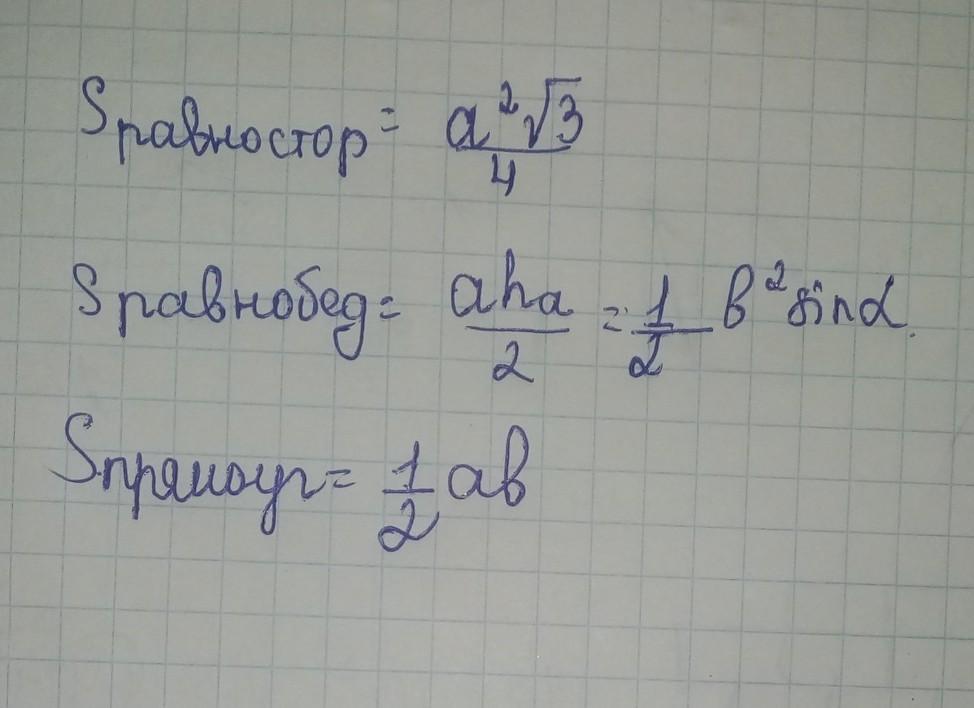 Sравностор = a²√3/4
Sравнобед = aha/2 = 1/2 b² sinα
Sпрямоуг = 1/2 ab